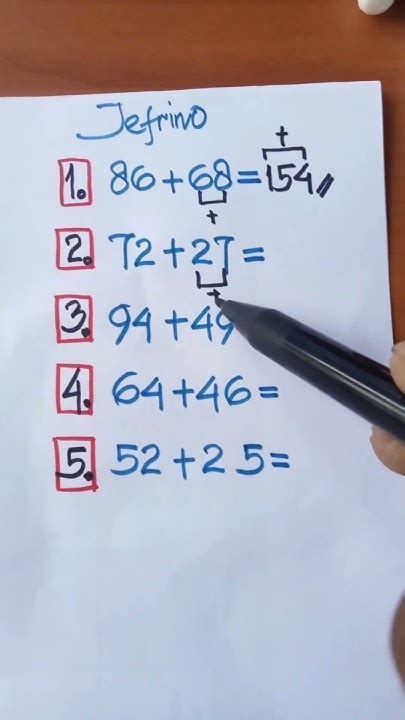 Jefrino
+
1. 86+68=154
+
2. 72+27=
+
3. 94+49
4. 64+46=
5. 52+25=